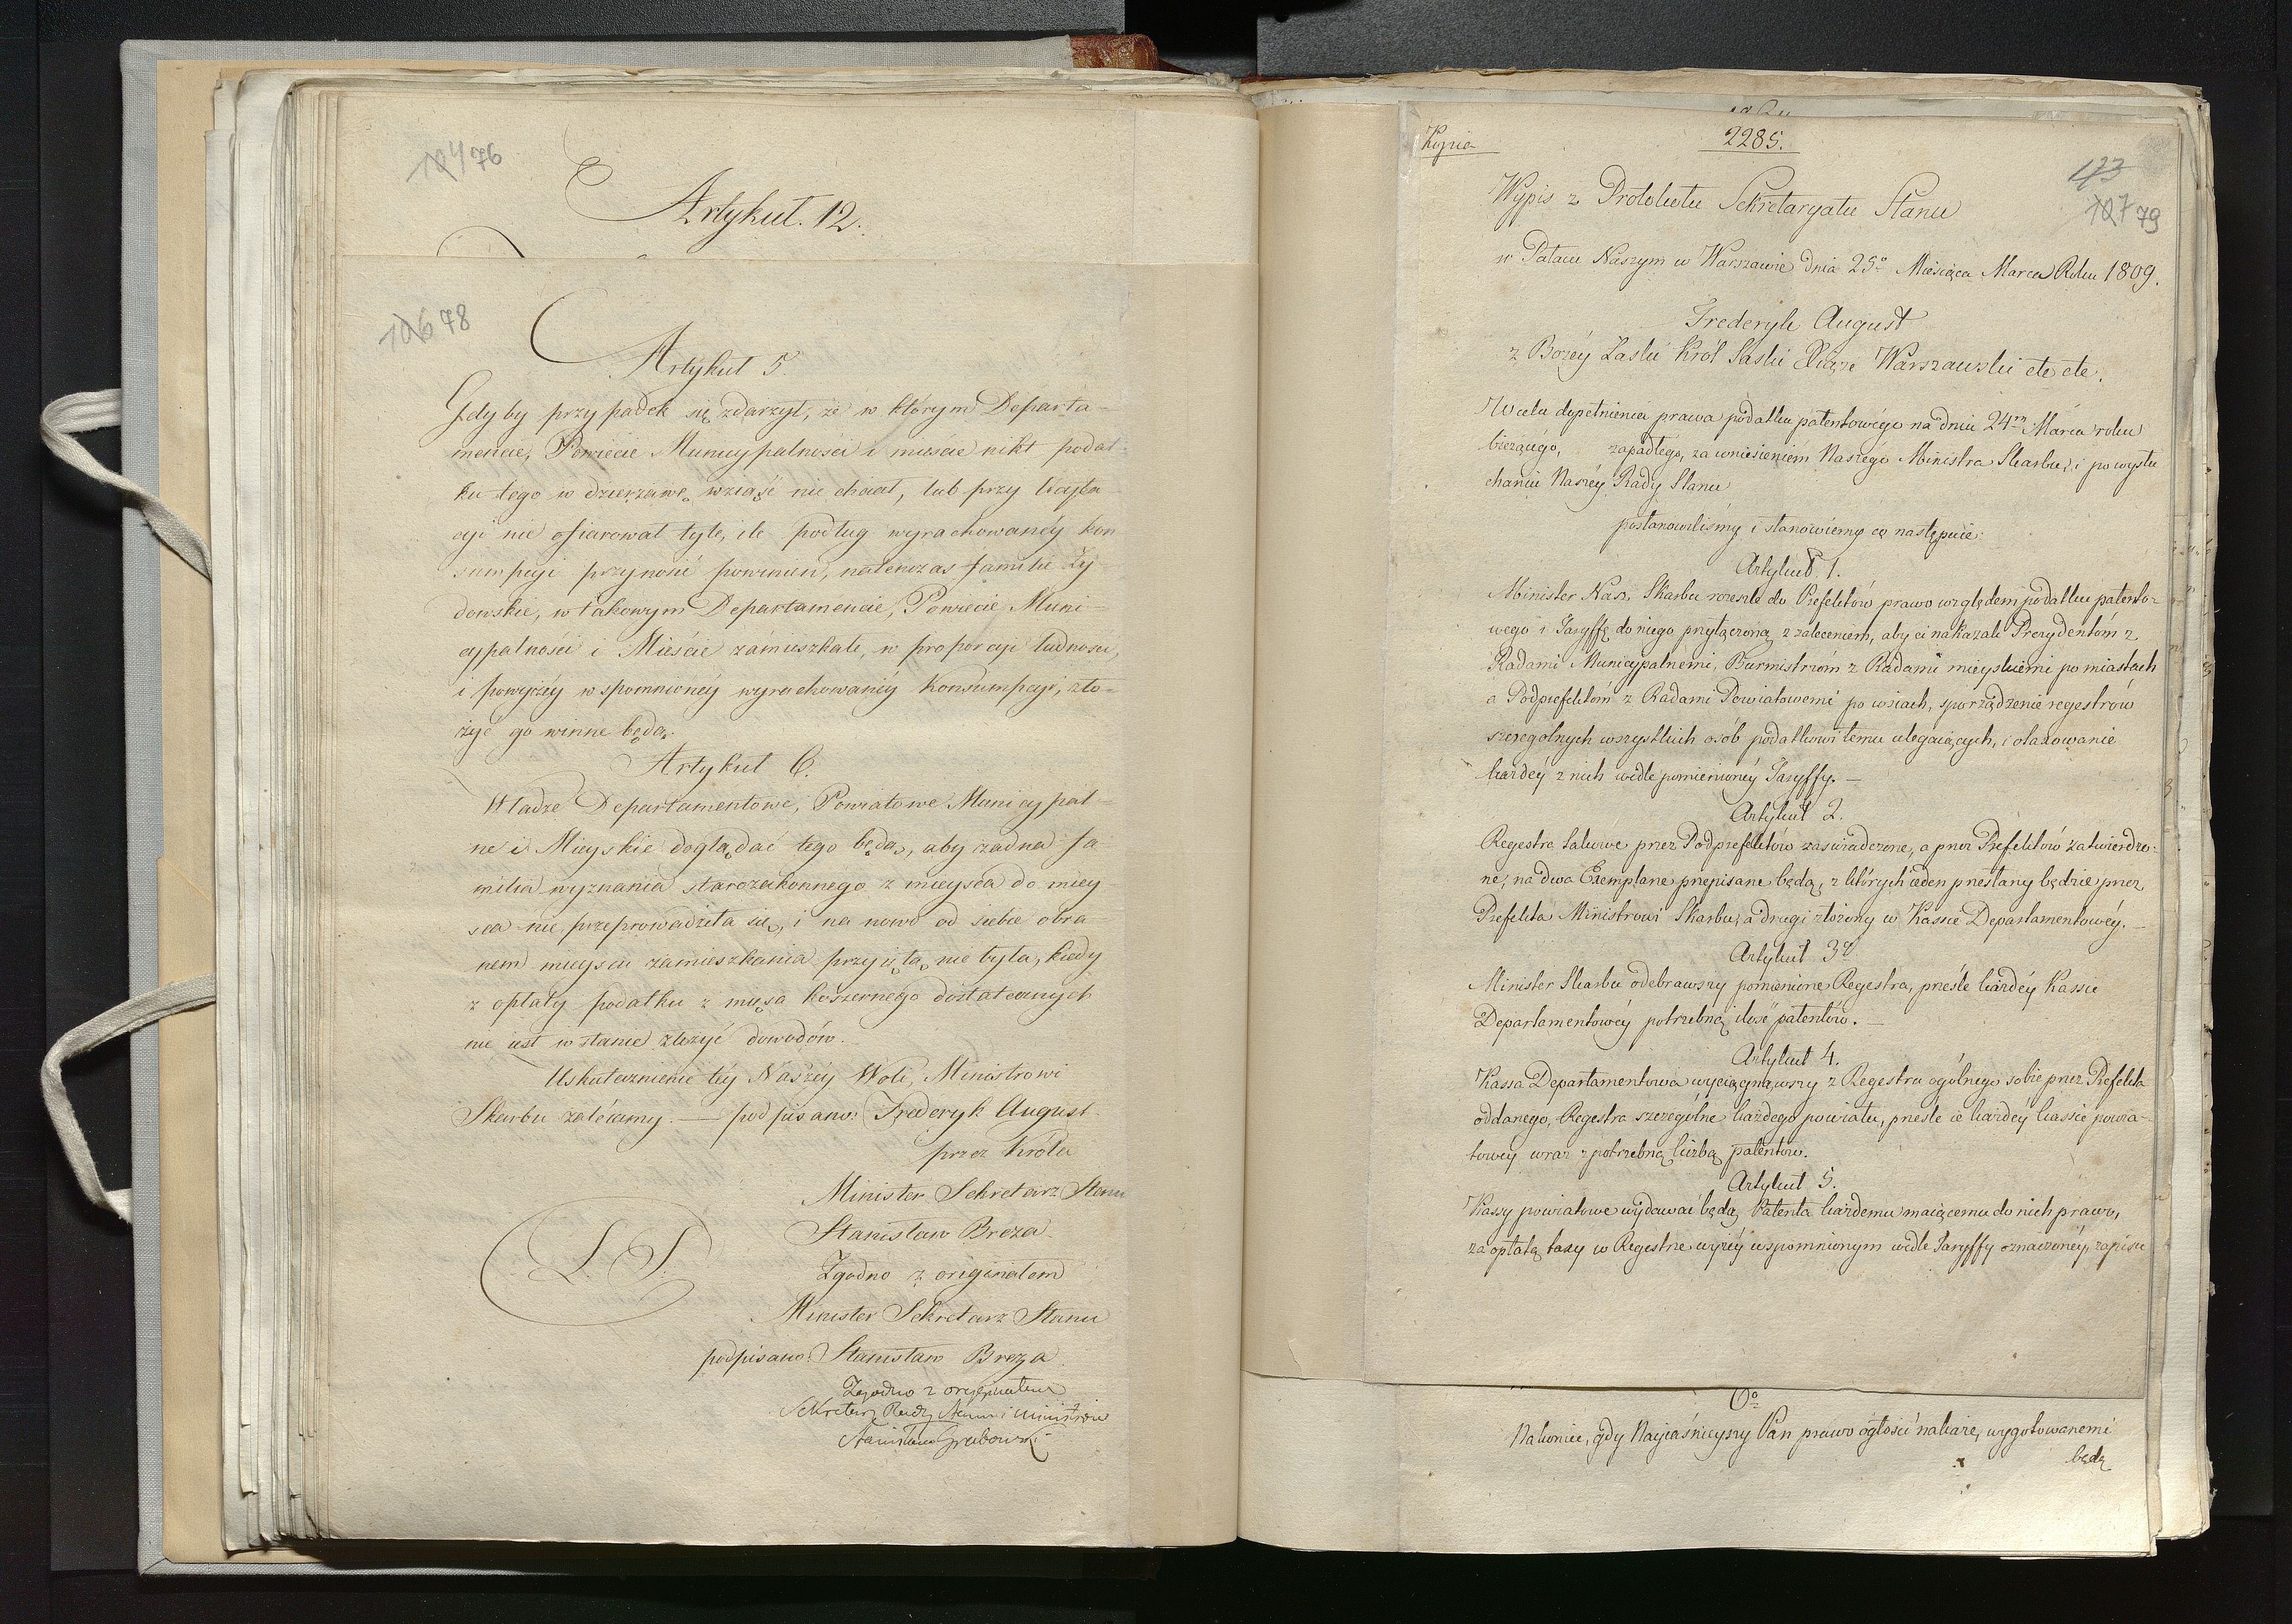 104 76
Artykuł. 12.
106 78
Artykuł 5.
Gdyby przypadek się zdarzył, że w którym Departa-
mencie, Powiecie Municypalności i mieście nikt podat-
ku tego w dzierzawę wziąść nie chciał, lub przy licyta
cyi nie ofiarował tyle, ile podług wyrachowanéy kon
sumpcyi przynosić powinien, natenczas familie Ży
dowskie, w takowym Departamencie, Powiecie Muni-
cypalności i Mieście zámieszkałe, w proporcyi ludności,
i powyżéy wspomnionéy wyrachowanéy Konsumpcyi, zło-
żyć go winne będą.
Artykuł 6.
Władze Departamentowe, Powiatowe Municypal-
ne i Mieyskie doglądać tego będą, aby żadna fa-
milia wyznania starozakonnego z mieysca do miey
sca nie przeprowadziła się, i na nowo od siebie obra-
nem mieyscu zamieszkania przyiętą nie była, kiedy
z opłaty podatku z mięsa koszernego dostatecznych
nie iest w stanie złożyć dowodów.
Uskutecznienie téy Naszéy Woli, Ministrowi
Skarbu zalécamy. — podpisano: Frederyk August.
przez Króla
Minister Sekretarz Stanu
Stanisław Breza
L. S.
Zgodno z originałem
Minister Sekretarz Stanu
podpisano: Stanisław Breza.
Zgodno z oryginałem
Sekretarz Rady Stanu i Ministrów
Stanisław Grabowski
Kopia
2285.
123
107 79
Wypis z Protokułu Sekretaryatu Stanu
w Pałacu Naszym w Warszawie dnia 25º Miesiąca Marca Roku 1809.
Frederyk August
z Bożéy Łaski Król Saski Xiąże Warszawski etc etc.
W celu dopełnienia prawa podatku patentowégo na dniu 24m Marca roku
bieżącego, zapadłego, za wniesieniém Naszégo Ministra Skarbu, i po wysłu
chaniu Naszéy Rady Stanu
postanowiliśmy i stanowiemy co następuie:
Artykuł 1.
Minister Nasz Skarbu rozeszle do Prefektów prawo względem podatku patento-
wego i Taryffę do niego przyłączoną z zaleceniem, aby ci nakazali Prezydentóm z
Radami Municypalnemi, Burmistrzóm z Radami mieyskiemi po miastach
a Podprefektóm z Radami Powiatowemi po wsiach, sporządzenie regestrów
szczególnych wszystkich osób podatkowi temu ulegaiących, i otaxowanie
każdéy z nich wedle pomienionéy Taryffy. —
Artykuł 2.
Regestra takowe przez Podprefektów zaswiadczone, a przez Prefektów zatwierdzo-
ne, na dwa Exemplarze przepisane będą, z których ieden przesłany będzie przez
Prefekta Ministrowi Skarbu, a drugi złożony w Kassie Departamentowéy. —
Artykuł 3º
Minister Skarbu odebrawszy pomienione Regestra, prześle każdéy Kassie
Departamentowéy potrzebną ilość patentów. —
Artykuł 4.
Kassa Departamentowa wyciągnąwszy z Regestru ogólnego sobie przez Prefekta
oddanego, Regestra szczególne każdego powiatu, prześle ie każdéy kassie powia-
towey wraz z potrzebną liczbą patentów.
Artykuł 5.
Kassy powiatowe wydawać będą Patenta każdemu maiącemu do nich prawo,
za opłatą taxy w Regestrze wyżéy wspomnionym wedle Taryffy oznaczonéy, zapisu
6º
Nakoniec, gdy Nayiaśnieyszy Pan prawo ogłosić nakaże, wygotowanemi
będą